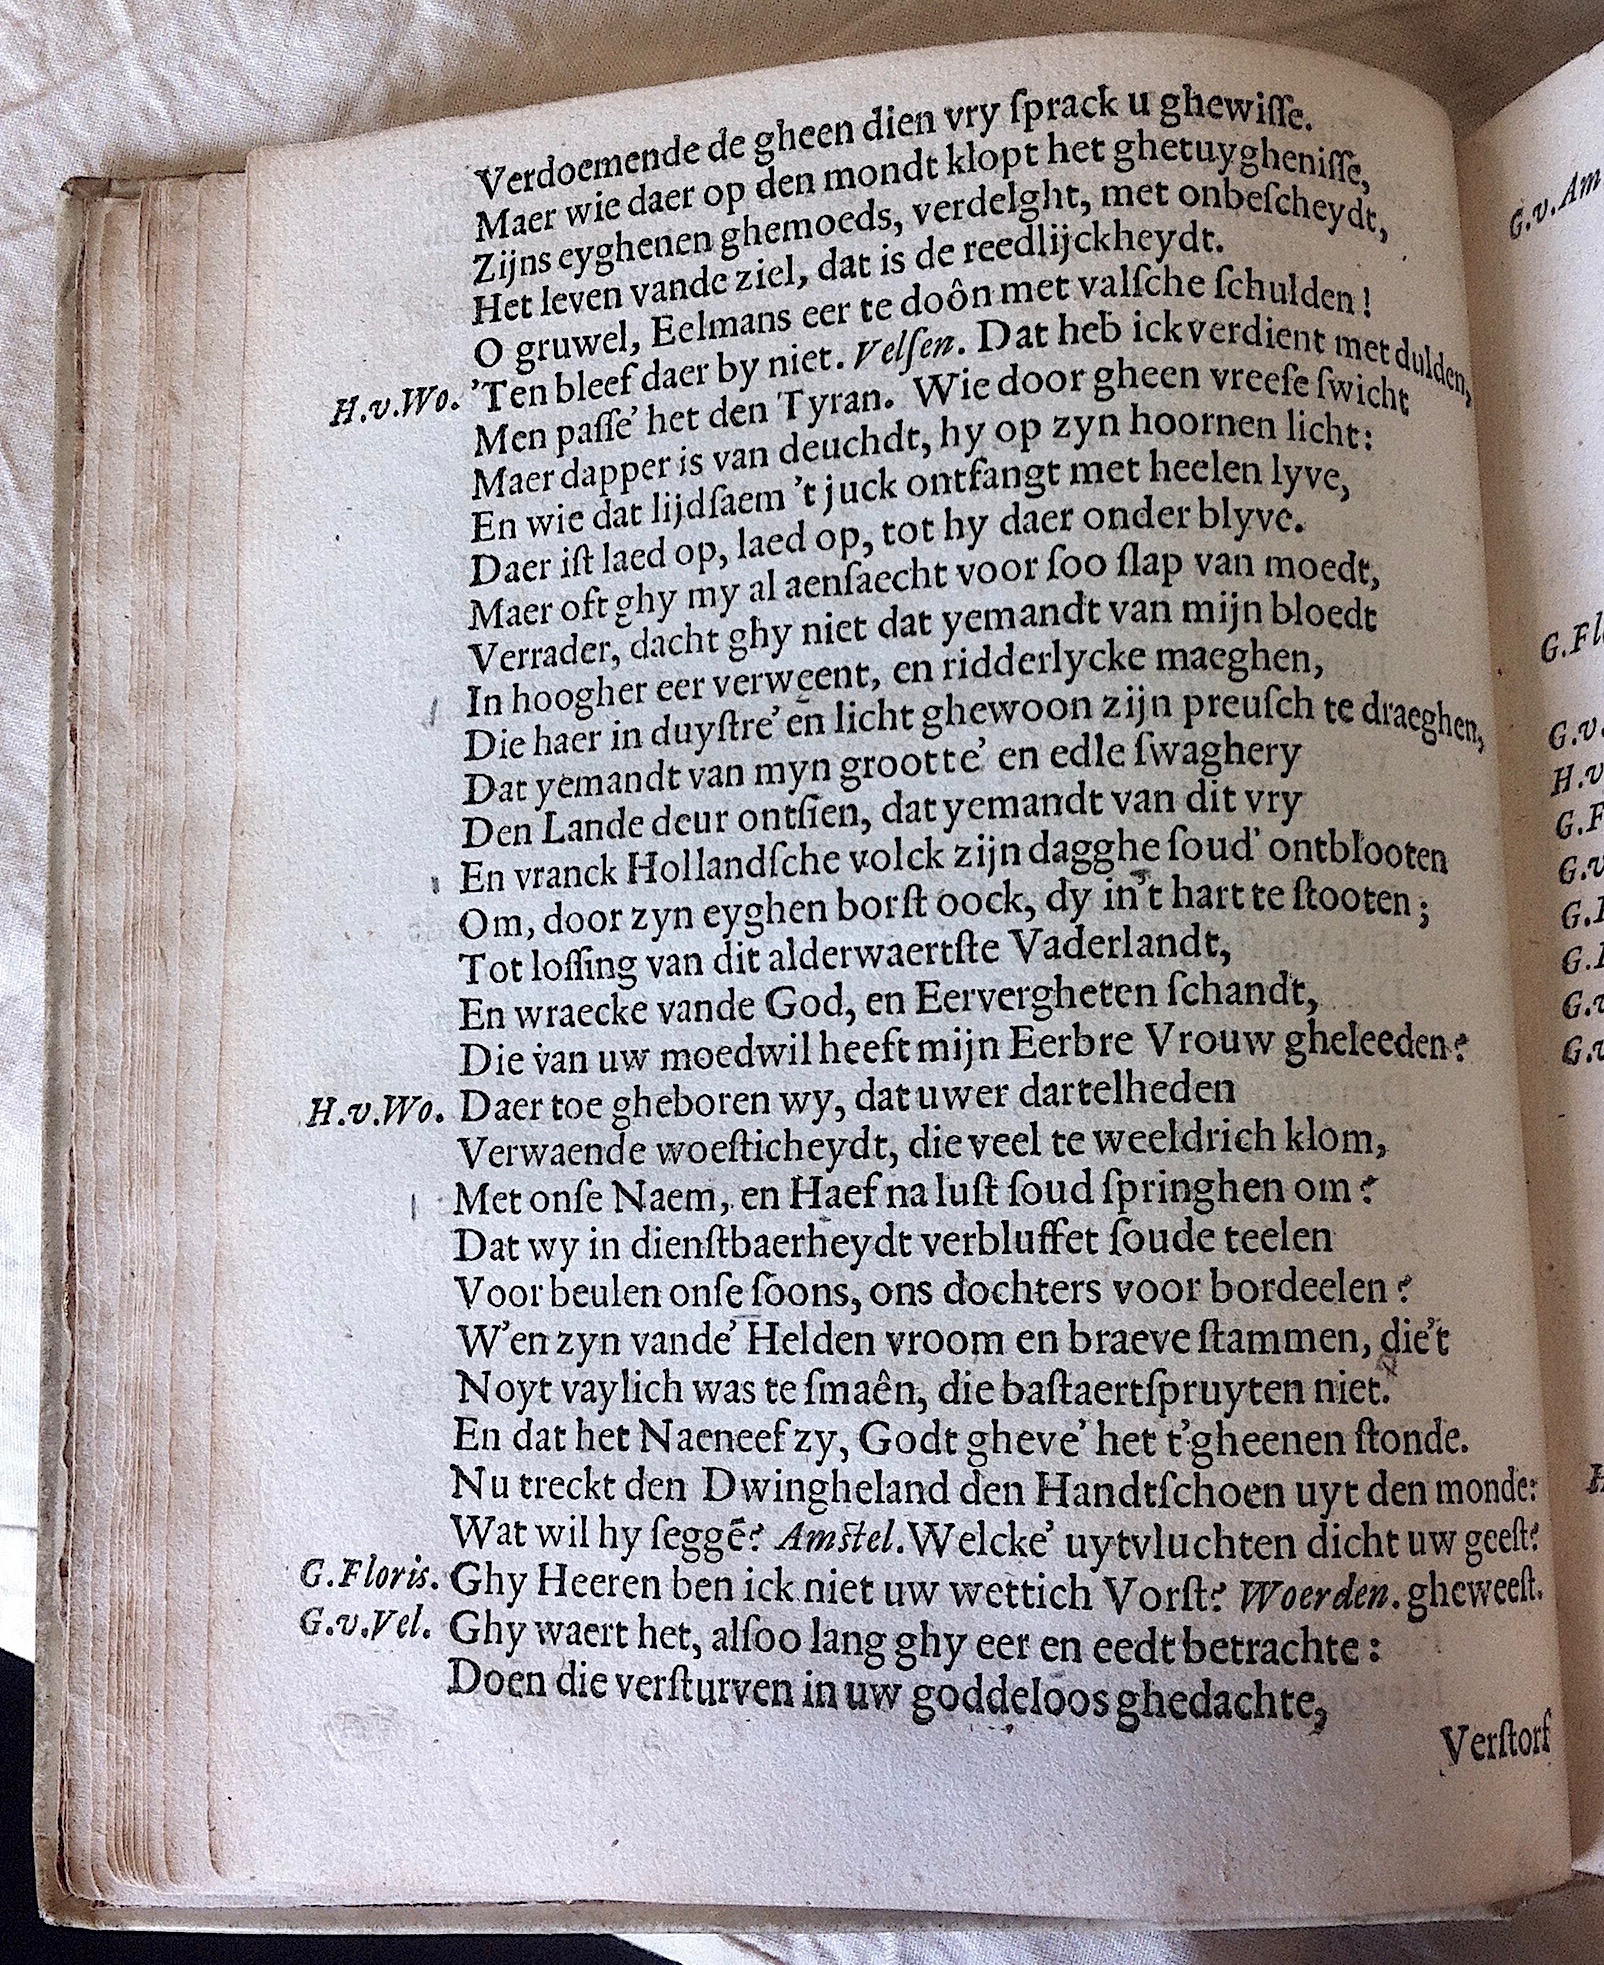 Verdoemende de gheen dien vry ſprack u ghewiſſe.
Maer wie daer op den mondt klopt het ghetuygheniſſe,
Zijns eyghenen ghemoeds, verdelght, met onbeſcheydt,
Het leven vande ziel, dat is de reedlijckheydt.
O gruwel, Eelmans eer te doôn met valſche ſchulden!
H.v.Wo. 'Ten bleef daer by niet. Velſen. Dat heb ick verdient met dulden,
Men paſſe' het den Tyran. Wie door gheen vreeſe ſwicht
Maer dapper is van deuchdt, hy op zyn hoornen licht:
En wie dat lijdſaem 't juck ontfangt met heelen lyve,
Daer iſt laed op, laed op, tot hy daer onder blyve.
Maer oft ghy my al aenſaecht voor ſoo ſlap van moedt,
Verrader, dacht ghy niet dat yemandt van mijn bloedt
In hoogher eer verweent, en ridderlycke maeghen,
Die haer in duyſtre' en licht ghewoon zijn preuſch te draeghen,
Dat yemandt van myn grootte' en edle ſwaghery
Den Lande deur ontſien, dat yemandt van dit vry
En vranck Hollandſche volck zijn dagghe ſoud' ontblooten
Om, door zyn eyghen borſt oock, dy in't hart te ſtooten;
Tot loſſing van dit alderwaertſte Vaderlandt,
En wraecke vande God, en Eervergheten ſchandt,
Die van uw moedwil heeft mijn Eerbre Vrouw gheleeden?
H.v.Wo. Daer toe gheboren wy, dat uwer dartelheden
Verwaende woeſticheydt, die veel te weeldrich klom,
Met onſe Naem, en Haef na luſt ſoud ſpringhen om?
Dat wy in dienſtbaerheydt verbluffet ſoude teelen
Voor beulen onſe ſoons, ons dochters voor bordeelen?
W'en zyn vande' Helden vroom en braeve ſtammen, die't
Noyt vaylich was te ſmaên, die baſtaertſpruyten niet.
En dat het Naeneef zy, Godt gheve' het t'gheenen ſtonde.
Nu treckt den Dwingheland den Handtſchoen uyt den monde:
Wat wil hy ſeggē? Amſtel. Welcke' uytvluchten dicht uw geeſt?
G.Floris. Ghy Heeren ben ick niet uw wettich Vorſt? Woerden. gheweeſt.
G.v.Vel. Ghy waert het, alſoo lang ghy eer en eedt betrachte:
Doen die verſturven in uw goddeloos ghedachte,
Verſtorf
G.v.Am
G.Fl
G.v.
H.v
G.F
G.v
G.
G.
G.v
G.v
H